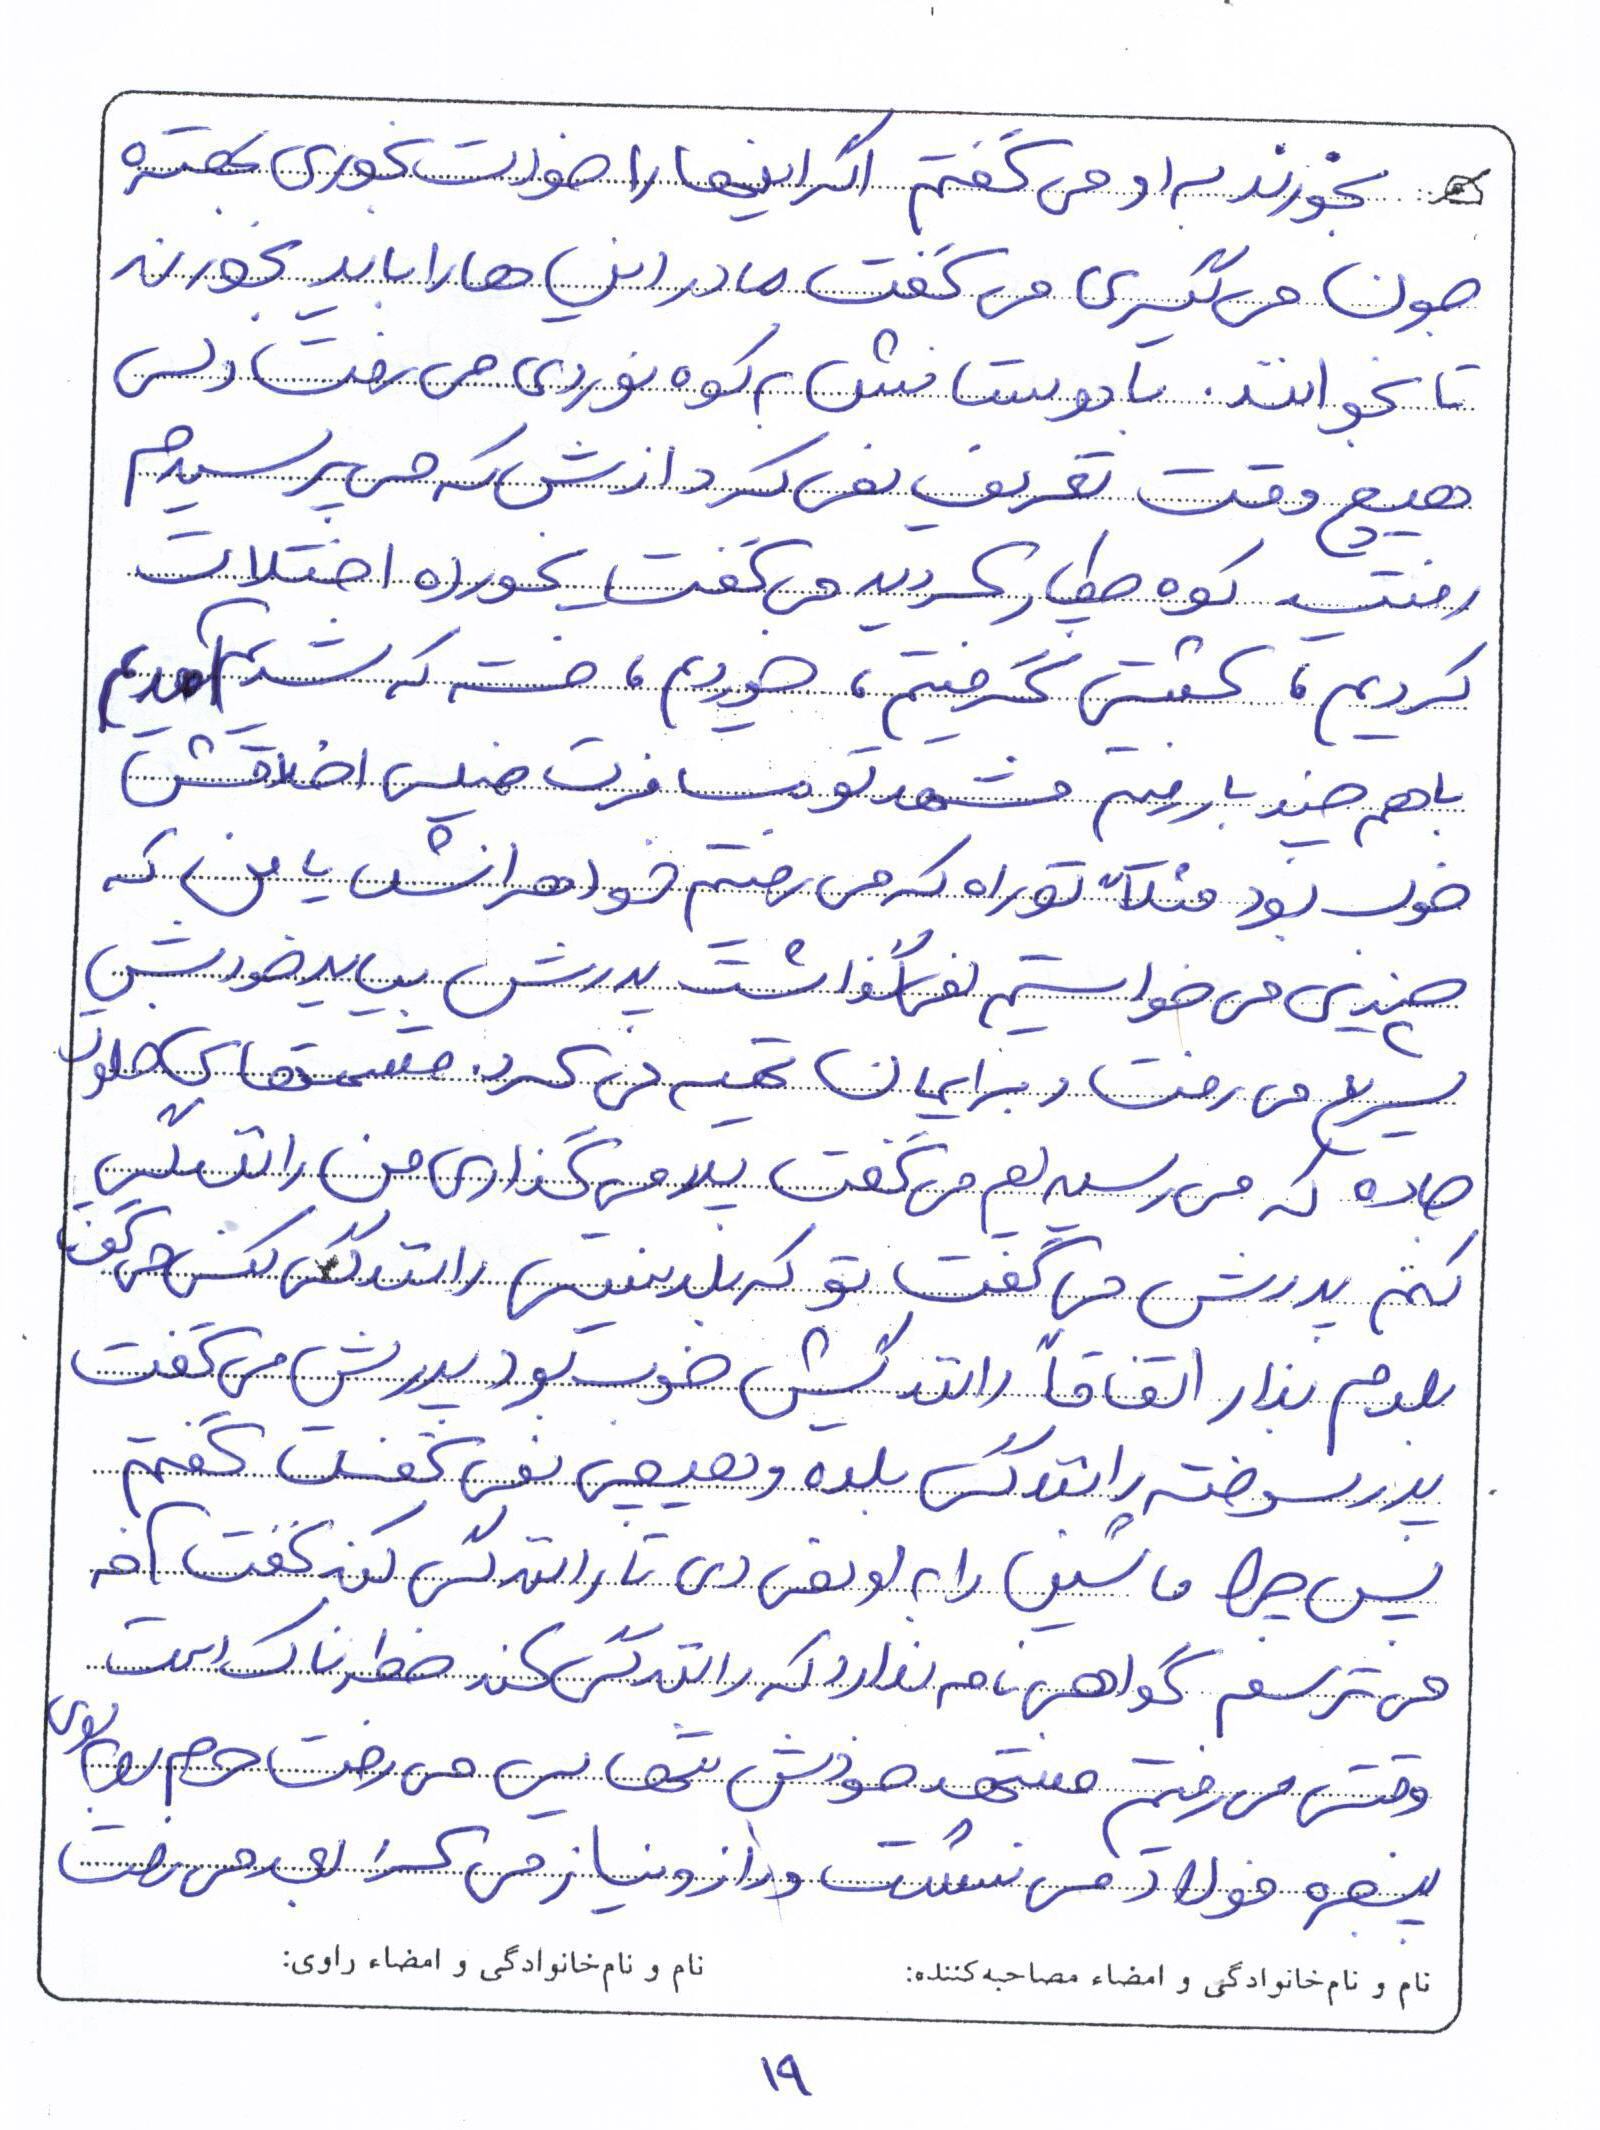 بخورند به او می گفتم اگر اینها را خودت بخوری بهتره
جون می گیری می گفت مادر این ها را باید بخورند
تا بخوانند. با دوستانش به کوه نوردی می رفت ولی
هیچ وقت تعریف نمی کرد ازش که می پرسیدم
رفتید کوه چکار کردید می گفت یخورده اختلات
کردیم، کشتی گرفتیم، خوردیم، خسته که شدیم آمدیم
با هم چند بار رفتیم مشهد تو مسافرت خیلی اخلاقش
خوب بود مثلاً تو راه که می رفتیم خواهرانش یا من که
چیزی می خواستیم نمی گذاشت پدرش بیاید خودش
سریع می رفت و برایمان تهیه می کرد. قسمتهای خلوت
جاده که می رسیدیم می گفت بابا می گذاری من رانندگی
کنم پدرش می گفت تو که بلد نیستی رانندگی کنی می گفت
بلدم بذار اتفاقاً رانندگیش خوب بود پدرش می گفت
پدر سوخته رانندگی بلده و هیچی نمی گفت گفتم
پس چرا ماشین را به او نمی دی تا رانندگی کند گفت آخه
می ترسم گواهی نامه ندارد که رانندگی کند خطرناک است
وقتی می رفتیم مشهد خودش تنهایی می رفت حرم روبروی
پنجره فولاد می نشست و راز و نیاز می کرد بعد می رفت
نام و نام‌خانوادگی و امضاء مصاحبه‌کننده: نام و نام‌خانوادگی و امضاء راوی:
۱۹